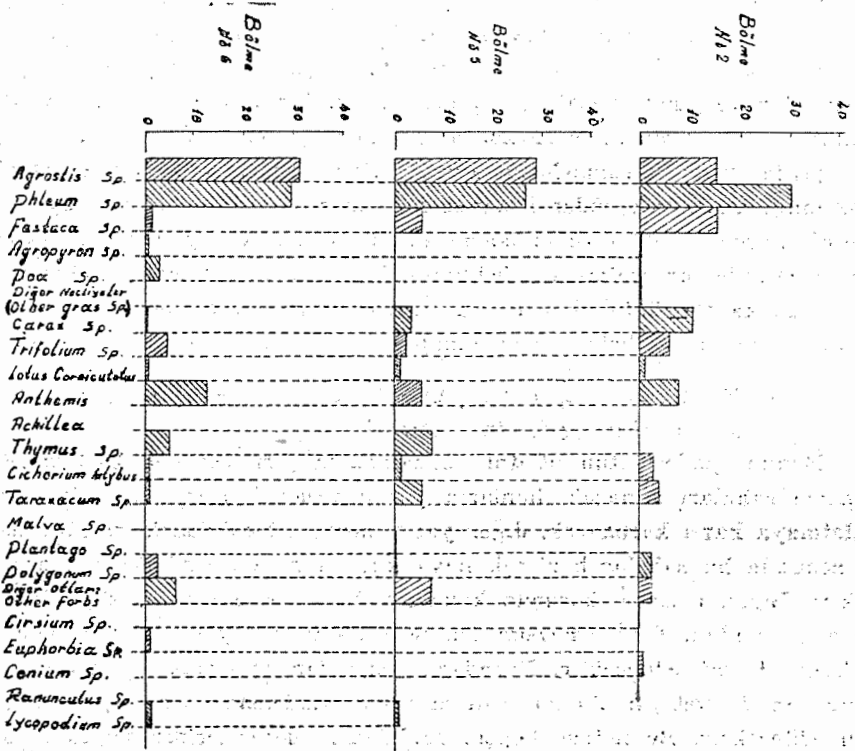 Bölme
No 6
Bölme
No 5
Bölme
No 2
0
10
20
30
40
0
10
20
30
40
0
10
20
30
40
Agrostis Sp.
Phleum Sp.
Fastaca Sp.
Agropyron Sp.
Poa Sp.
Diğer
(Other gras Sp)
Carax Sp.
Trifolium Sp.
Lotus Corniculatus
Anthemis
Achillea
Thymus Sp.
Cichorium
Taraxacum Sp
Malva Sp
Plantago Sp.
Polygonum Sp.
Diğer otlar:
Other Forbs
Cirsium Sp.
Euphorbia Sp.
Conium Sp.
Ranunculus Sp.
Lycopodium Sp.